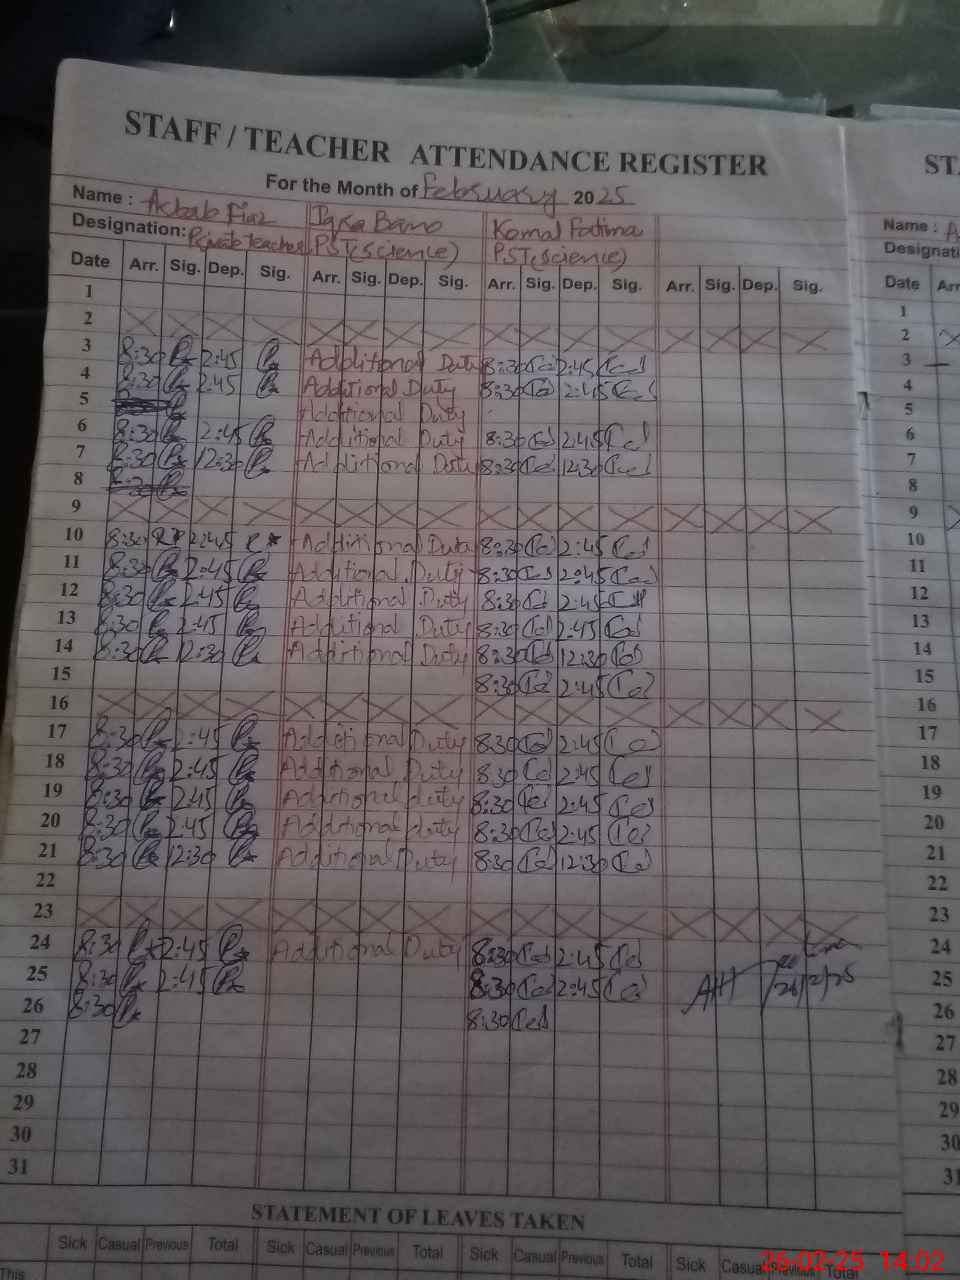 STAFF / TEACHER ATTENDANCE REGISTER
For the Month of February 2025
Name : Fiaz Iqra Bano Komal Fatima
Designation: Private teacher PST(Science) PST(Science)
Date Arr. Sig. Dep. Sig. Arr. Sig. Dep. Sig. Arr. Sig. Dep. Sig. Arr. Sig. Dep. Sig.
1
2
3 8:30 2:45 Additional Duty 8:30 2:45
4 8:30 2:45 Additional Duty 8:30 2:45
5 Additional Duty
6 8:30 2:45 Additional Duty 8:30 2:45
7 8:30 12:30 Additional Duty 8:30 12:30
8 8:30
9
10 8:30 2:45 Additional Duty 8:30 2:45
11 8:30 2:45 Additional Duty 8:30 2:45
12 8:30 2:45 Additional Duty 8:30 2:45
13 8:30 2:45 Additional Duty 8:30 2:45
14 8:30 12:30 Additional Duty 8:30 12:30
15 8:30 2:45
16
17 8:30 2:45 Additional Duty 8:30 2:45
18 8:30 2:45 Additional Duty 8:30 2:45
19 8:30 2:45 Additional duty 8:30 2:45
20 8:30 2:45 Additional duty 8:30 2:45
21 8:30 12:30 Additional Duty 8:30 12:30
22
23
24 8:30 2:45 Additional Duty 8:30 2:45
25 8:30 2:45 8:30 2:45
26 8:30 8:30
27
28
29
30
31
STATEMENT OF LEAVES TAKEN
Sick Casual Previous Total Sick Casual Previous Total Sick Casual Previous Total Sick Casual Previous Total
This
Name :
Date
1
2
3
4
5
6
7
8
9
10
11
12
13
14
15
16
17
18
19
20
21
22
23
24
25
26
27
28
29
30
31
26-02-25 14:02